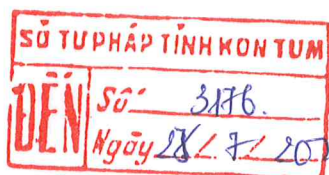 SỞ TƯ PHÁP TỈNH KON TUM
ĐẾN
Số: 3176.
Ngày 28/7/20